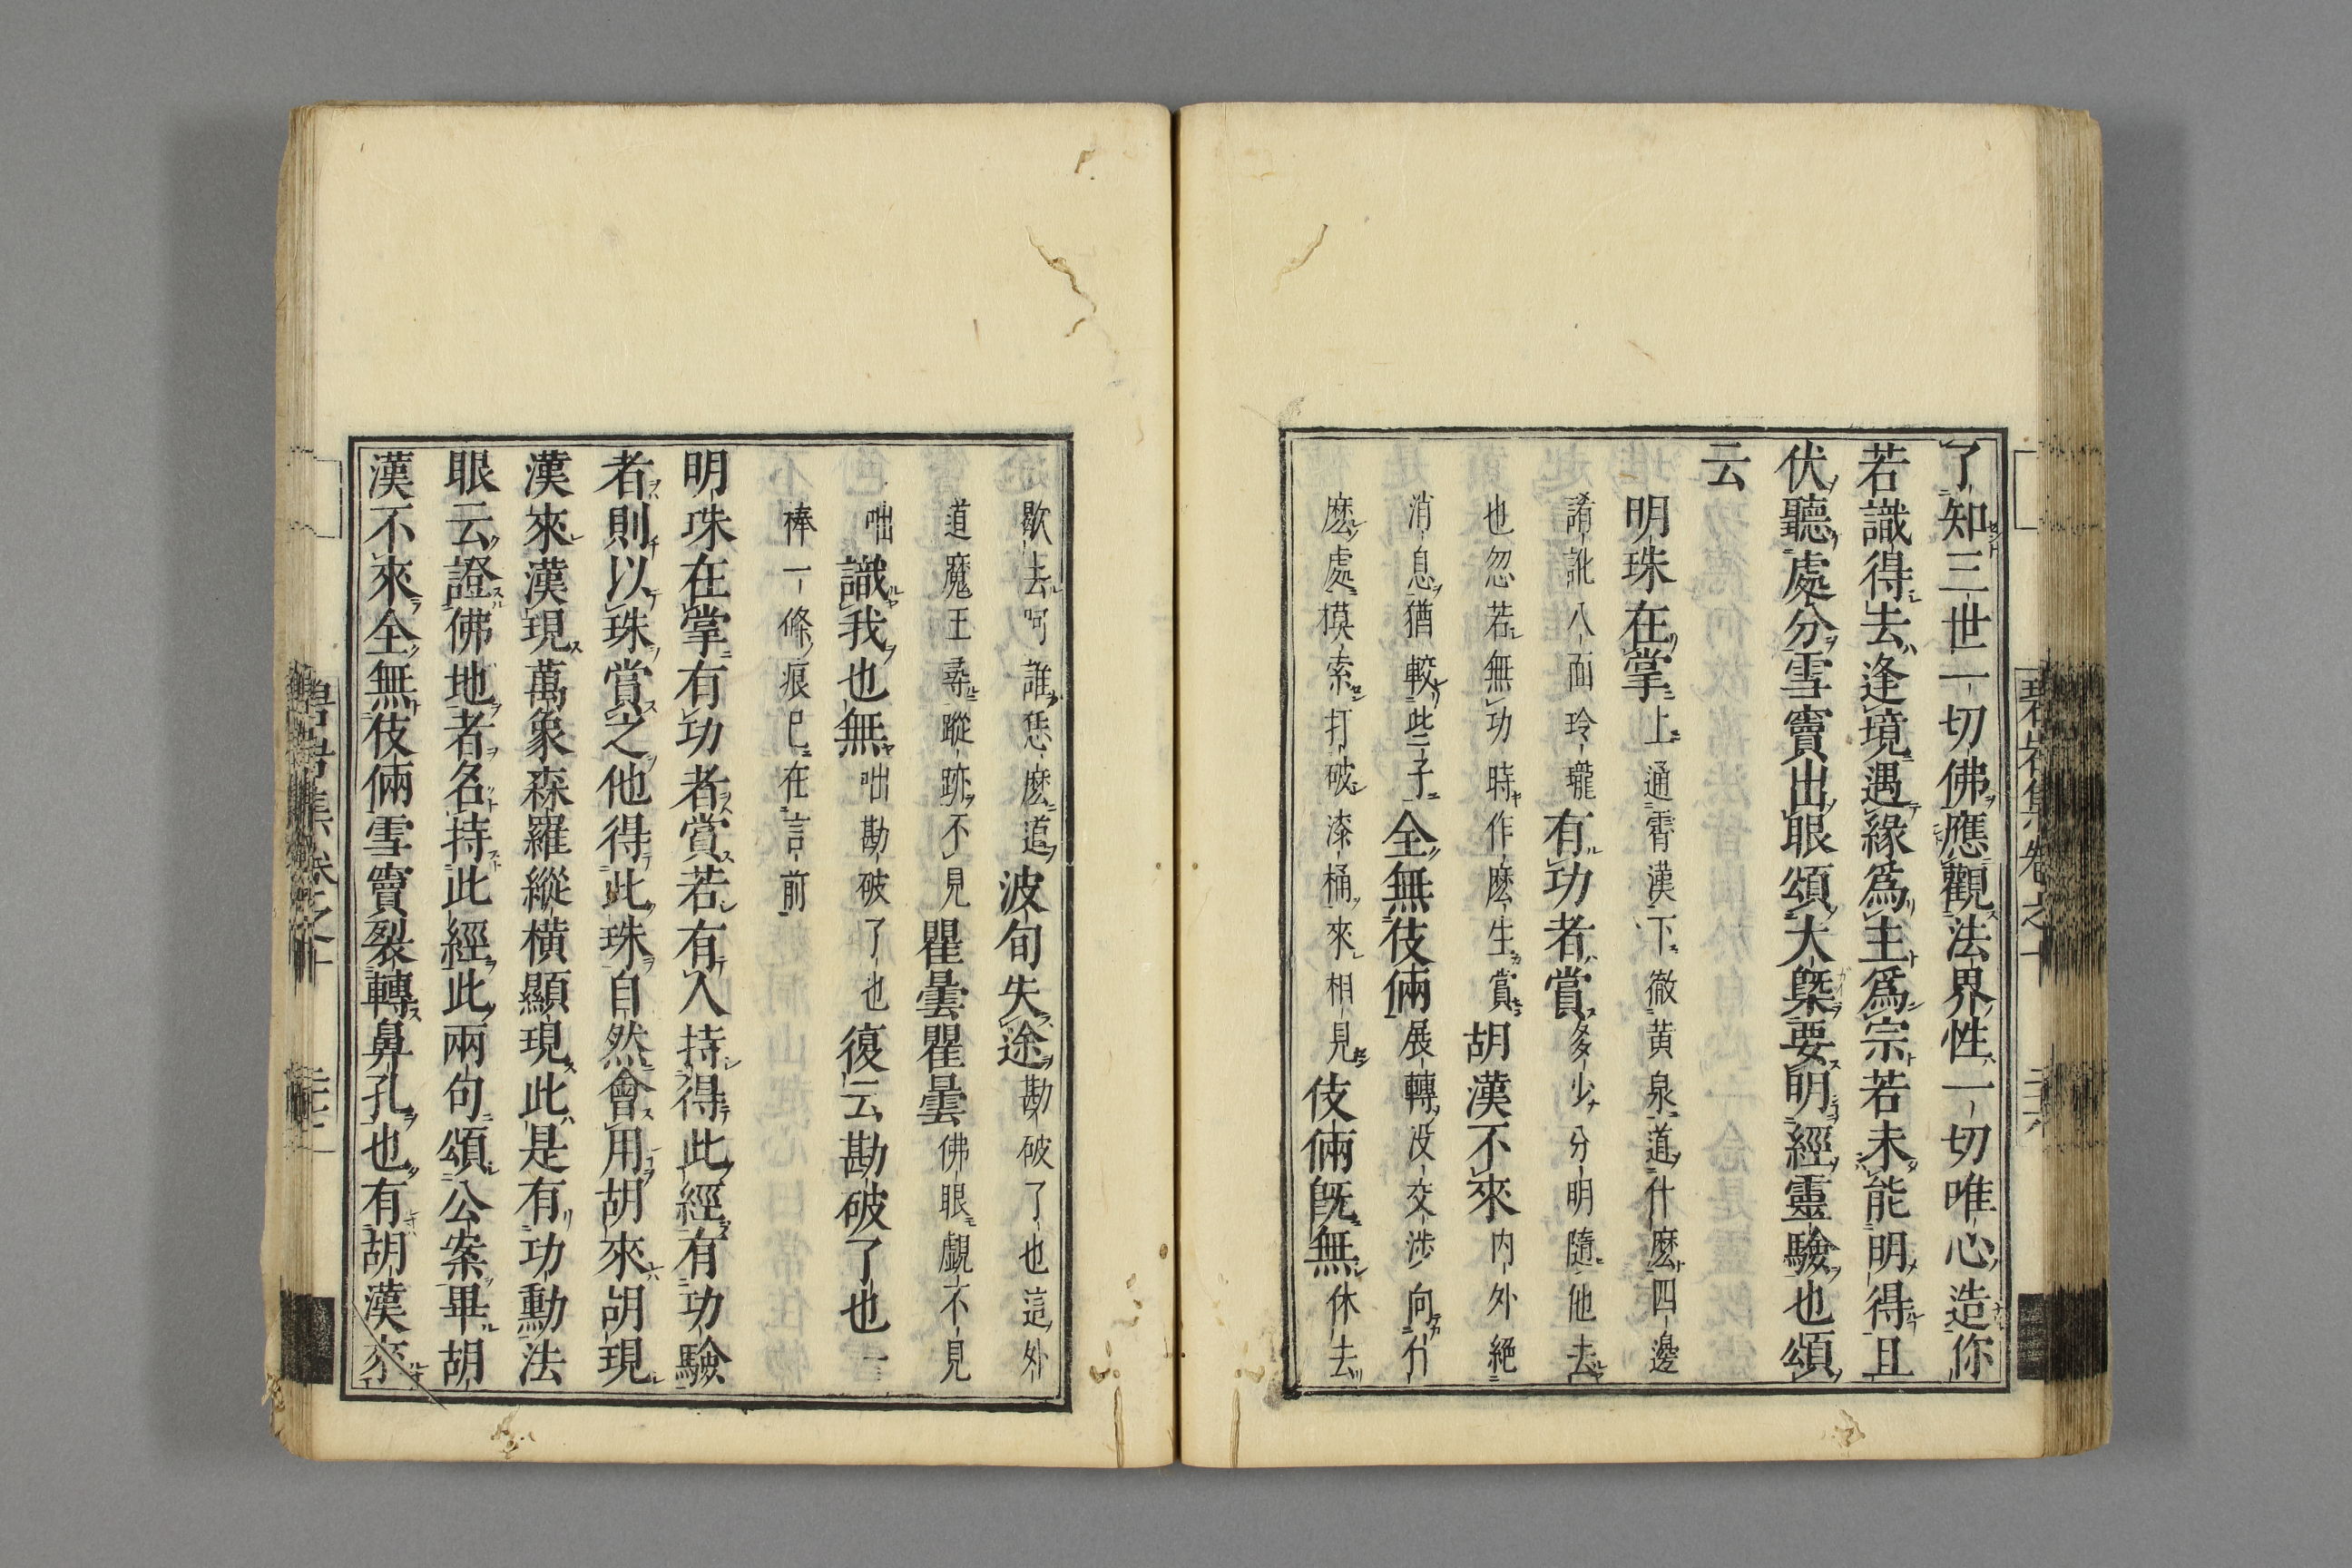 了知三世一切佛應觀法界性一切唯心造你
若識得去逢境遇緣爲主爲宗若未能明得且
伏聽處分雪竇出眼頌大槩要明經靈驗也頌
云
明珠在掌上通霄漢下徹黄泉道什麽四邊
誵訛八面玲瓏有功者賞多少分明隨他去
也忽若無功時作麽生賞胡漢不來内外絶
消息猶較些子全無伎倆展轉没交涉向什
麽處摸索打破漆桶來相見伎倆既無休去
歇去呵誰恁麽道波旬失途勘破了也這外
道魔王尋蹤跡不見瞿曇瞿曇佛眼覷不見
咄識我也無咄勘破了也復云勘破了也一
棒一條痕已在言前
明珠在掌有功者賞若有人持得此經有功驗
者則以珠賞之他得此珠自然會用胡來胡現
漢來漢現萬象森羅縱横顯現此是有功勳法
眼云證佛地者名持此經此兩句頌公案畢胡
漢不來全無伎倆雪竇裂轉鼻孔也有胡漢來
碧岩集卷之十